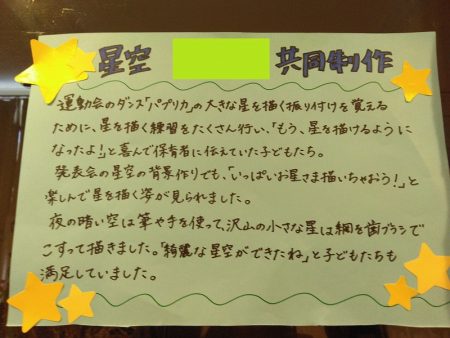 星空 共同制作
運動会のダンス「パプリカ」の大きな星を描く振り付けを覚える
ために、星を描く練習をたくさん行い、「もう、星を描けるように
なったよ!」と喜んで保育者に伝えていた子どもたち。
発表会の星空の背景作りでも、「いっぱいお星さま描いちゃおう!」と
楽しんで星を描く姿が見られました。
夜の暗い空は筆や手を使って、沢山の小さな星は網を歯ブラシで
こすって描きました。「綺麗な星空ができたね」と子どもたちも
満足していました。